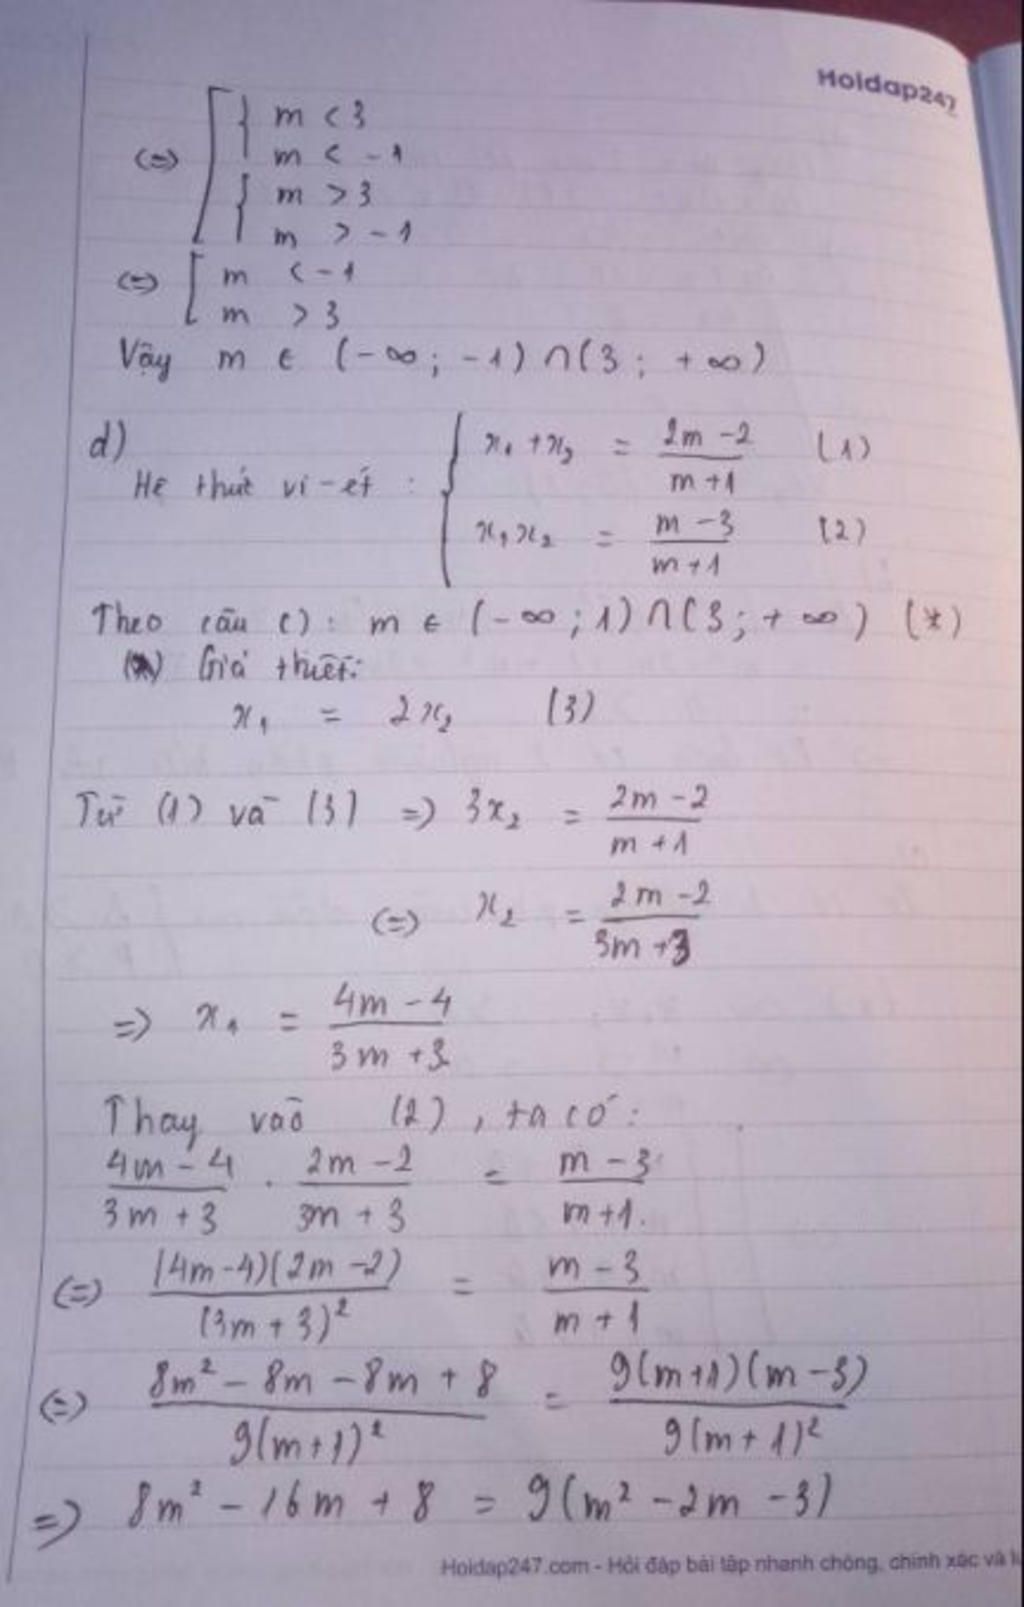 Hoidap247
(=) [ { m < 3
m < -1
{ m > 3
m > -1
(=) [ m < -1
m > 3
Vậy m ∈ (-∞; -1) ∩ (3; +∞)
d)
Hệ thức vi-ét : { x₁ + x₂ = (2m - 2)/(m + 1) (1)
x₁x₂ = (m - 3)/(m + 1) (2)
Theo câu c): m ∈ (-∞; 1) ∩ (3; +∞) (*)
Giả thiết:
x₁ = 2x₂ (3)
Từ (1) và (3) => 3x₂ = (2m - 2)/(m + 1)
(=) x₂ = (2m - 2)/(3m + 3)
=> x₁ = (4m - 4)/(3m + 3)
Thay vào (2), ta có:
(4m - 4)/(3m + 3) . (2m - 2)/(3m + 3) = (m - 3)/(m + 1)
(=) (4m - 4)(2m - 2)/(3m + 3)² = (m - 3)/(m + 1)
(=) (8m² - 8m - 8m + 8)/9(m + 1)² = 9(m + 1)(m - 3)/9(m + 1)²
=> 8m² - 16m + 8 = 9(m² - 2m - 3)
Hoidap247.com - Hỏi đáp bài tập nhanh chóng, chính xác và